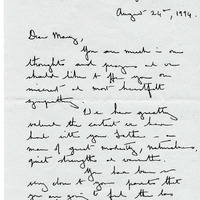 August 24th, 1994.
Dear Mary,
You are much in our
thoughts and prayers & we
should like to offer you our
sincerest & most heartfelt
sympathy.
We have greatly
valued the contact we have
had with your father - a
man of great modesty, naturalness,
quiet strength & warmth.
You have been so
very close to your parents that
you are going to feel the loss